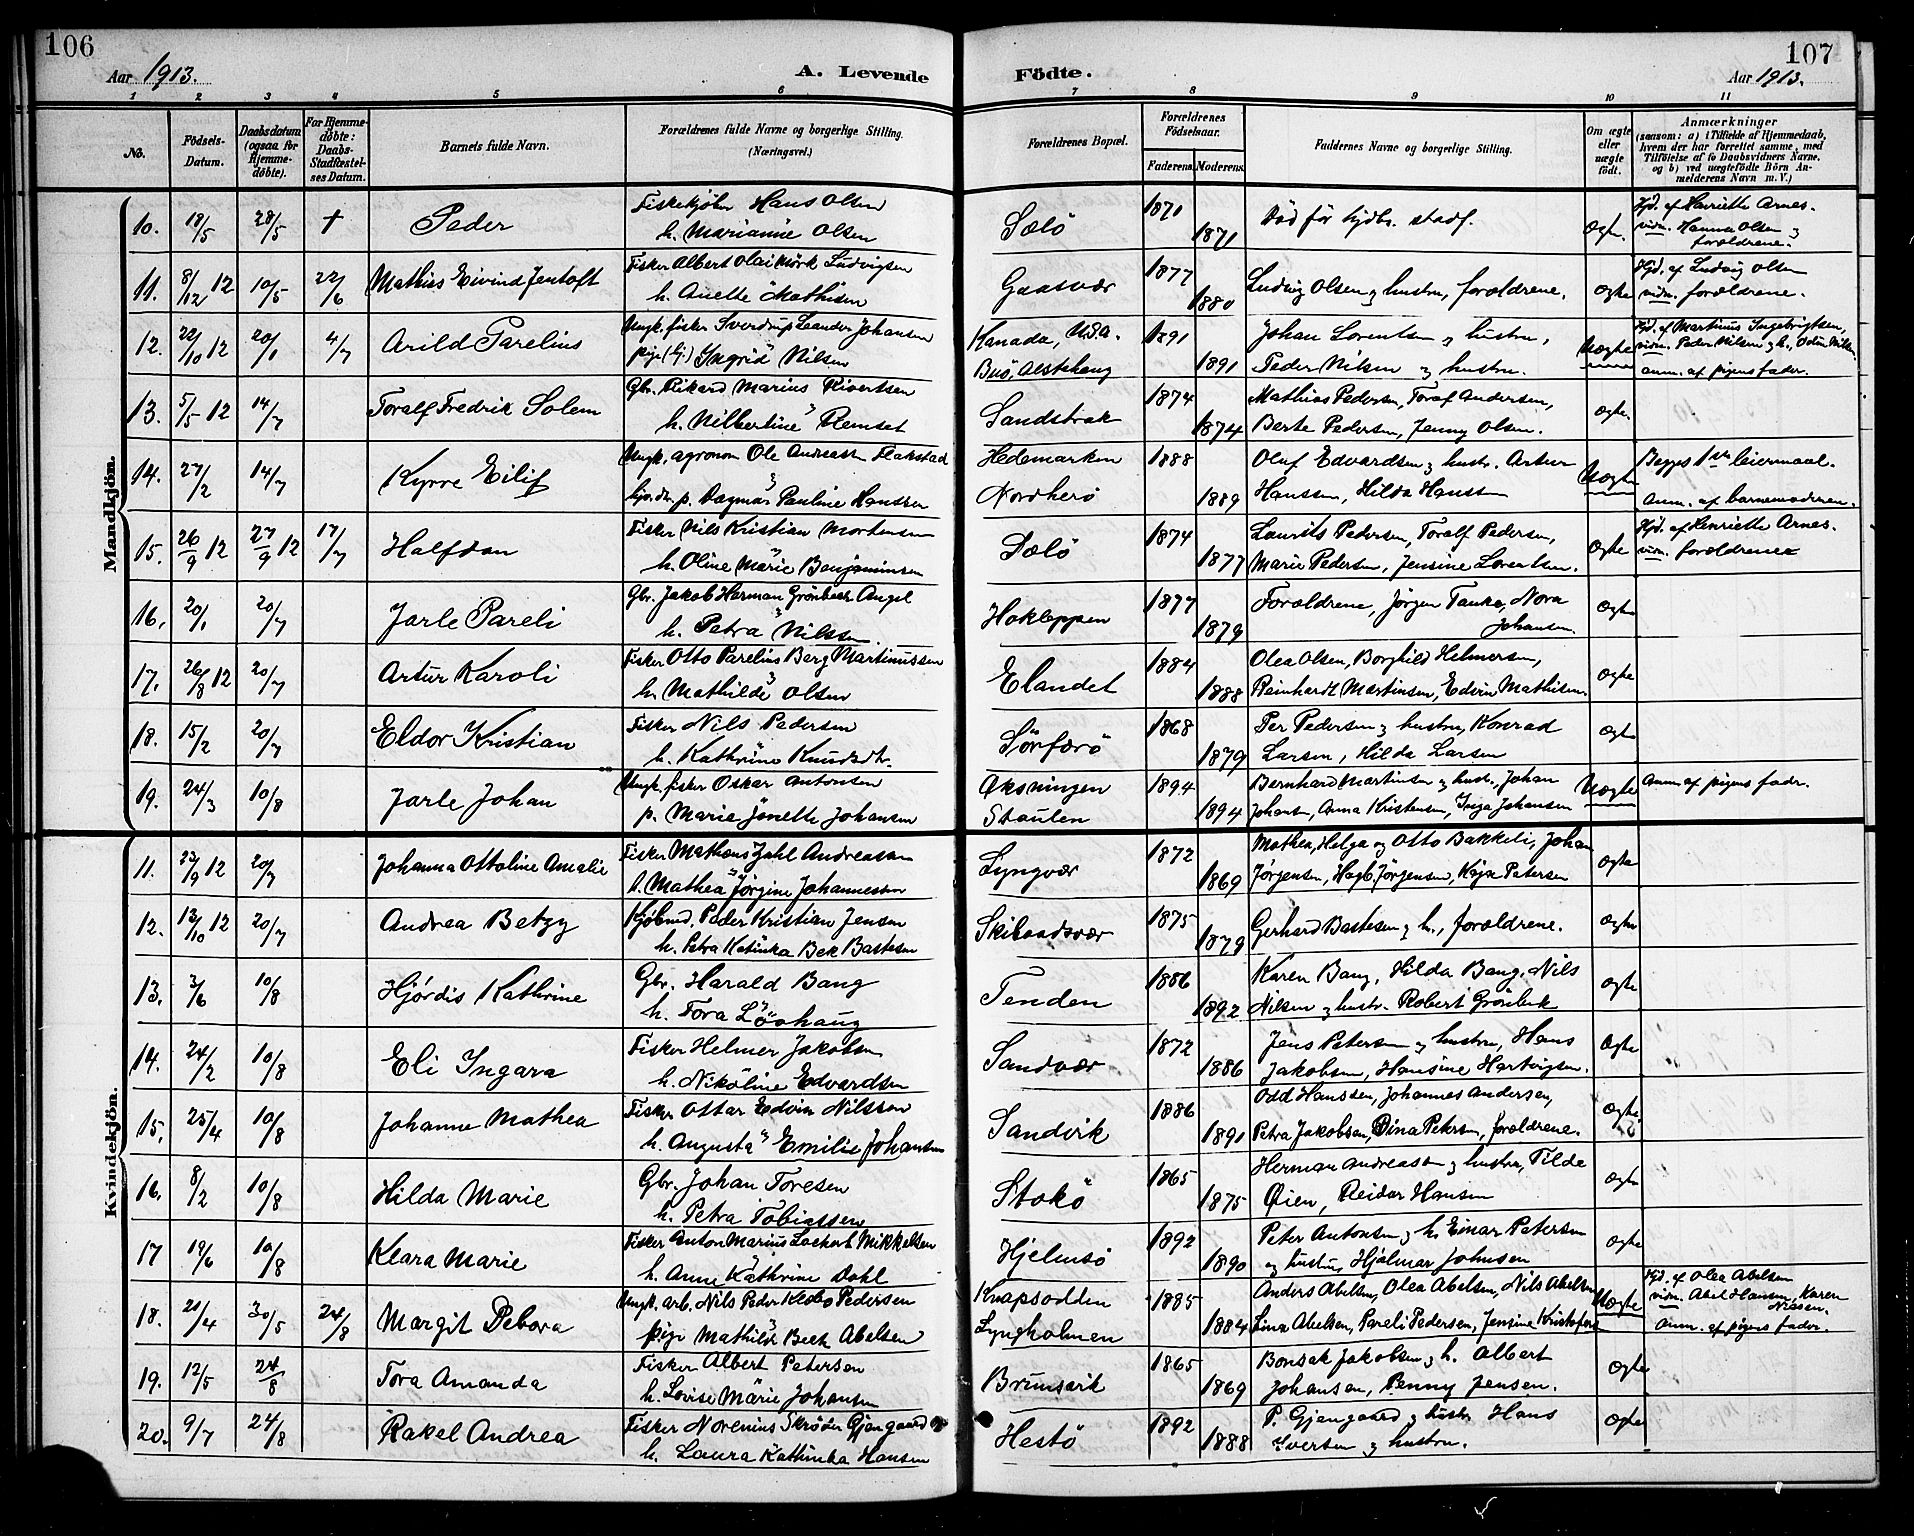 106
Aar 1913.
A. Levende
Födte.
107
Aar 1913.
1 2 3 4 5 6 7 8 9 10 11
No.
Födsels-Datum.
Daabsdatum (ogsaa for Hjemme-döbte).
For Hjemme-döbte: Daabs-Stadfæstel-ses Datum.
Barnets fulde Navn.
Forældrenes fulde Navne og borgerlige Stilling.
(Næringsvei.)
Forældrenes Bopæl.
Forældrenes Födselsaar.
Faderens. Moderens.
Faddernes Navne og borgerlige Stilling.
Om ægte eller uægte födt.
Anmærkninger
(saasom: a) i Tilfælde af Hjemmedaab,
hvem der har forrettet samme, med
Tilföielse af to Daabsvidners Navne,
og b) ved uægtefödte Börn An-
melderens Navn m. V.)
Mandkjön.
10. 18/5 28/5 † Peder Fiskekjøber Hans Olsen Sælö 1871 Död för hjdbs. stadf. Ægte. Hjd. af Henriette Arnes.
h. Marianne Olsen 1871 vidn. Hanna Olsen &
forældrene.
11. 8/12 12 10/5 22/6 Mathias Eivind Jentoft Fisker Albert Olai Mörk Ludvigsen Gaasvær 1877 Ludvig Olsen & hustru, forældrene. Ægte Hjd. af Ludvig Olsen
h. Anette Mathisen 1880 vidn. forældrene.
12. 22/10 12 20/1 4/7 Arild Parelius Ungk. fisker Sverdrup Leander Johansen Kanada, Usa. 1891 Johan Lorentsen & hustru, Uægte Hjd. af Martinus Ingebrigtsen,
pige (tj.) Ingrid Nilsen Buö, Alstahaug 1891 Peder Nilsen & hustru. vidn. Peder Nilsen & h., Odin Nilsen.
anm. af pigens fader.
13. 5/5 12 14/7 Toralf Fredrik Solem Gbr. Rikard Marius Sivertsen Sandstrak 1874 Mathias Pedersen, Toraf Andersen, Ægte.
h. Nilbertine Remset 1874 Berte Pedersen, Jenny Olsen.
14. 27/2 14/7 Kyrre Eilif Ungk. agronom Ole Andreas Flakstad Hedemarken 1888 Oluf Edvardsen & hustr. Artur Uægte Begges 1ste leiermaal.
p. Dagmar Pauline Hanssen Nordherö 1889 Hanssen, Hilda Hanssen anm. af barnemoderen.
15. 26/9 12 27/9 12 17/7 Halfdan Fisker Nils Kristian Mortensen Sælö 1874 Laurits Pedersen, Toralf Pedersen, Ægte Hjd. af Henriette Arnes.
h. Oline Marie Benjaminsen 1877 Marie Pedersen, Jensine Lorentsen. vidn. forældrene
16. 20/1 20/7 Jarle Pareli Gbr. Jakob Herman Grönbech Angel Hakleppen 1877 Forældrene, Jörgen Tanke, Nora Ægte
h. Petra Nilssen. 1879 Johansen.
17. 26/8 12 20/7 Artur Karoli Fisker Otto Parelius Berg Martinussen Elandet 1884 Olea Olsen, Borghild Helmersen, Ægte
h. Mathilde Olsen 1888 Reinhardt Martinsen, Edvin Mathisen.
18. 15/2 20/7 Eldor Kristian Fisker Nils Pedersen Sörfærö 1868 Per Pedersen & hustru, Konrad Ægte
h. Kathrine Knudsdtr. 1879 Larsen, Hilda Larsen
19. 24/3 10/8 Jarle Johan Ungk. fisker Oskar Antonsen Øksningen 1894 Bernhard Martinsen & hustr., Johan Uægte Anm. af pigens fader.
p. Marie Jönette Johansen Staulen 1894 Johansen, Anna Kristensen, Inga Johansen
Kvindekjön.
11. 23/9 12 20/7 Johanna Ottoline Amalie Fisker Mathæus Zahl Andreassen Lyngvær 1872 Mathea, Helga og Otto Bakkeli, Johan Ægte
h. Mathea Jörgine Johannesen 1869 Jörgensen, Hagb. Jörgensen, Kaja Petersen
12. 13/10 12 20/7 Andrea Betzy Kjöbmd. Peder Kristian Jensen Skibaadsvær 1875 Gerhard Bastesen & h., forældrene. Ægte
h. Petra Katinka Bek Bastesen 1879
13. 3/6 10/8 Hjördis Kathrine Gbr. Harald Bang Tenden 1886 Karen Bang, Hilda Bang, Nils Ægte
h. Tora Lövhaug 1892 Nilsen & hustr. Robert Grönbek
14. 24/2 10/8 Eli Ingara Fisker Helmer Jakobsen Sandvær 1872 Jens Petersen & hustru, Hans Ægte
h. Nikoline Edvardsen 1886 Jakobsen, Hansine Hartvigsen.
15. 25/4 10/8 Johanne Mathea Fisker Ottar Edvin Nilsson Sandvik 1886 Odd Hanssen, Johannes Andersen, Ægte
h. Augusta Emilie Johansen 1891 Petra Jakobsen, Dina Petersen, forældrene.
16. 8/2 10/8 Hilda Marie Gbr. Johan Toresen Stokö 1865 Herman Andreassen & hustru, Tilda Ægte
h. Petra Tobiassen 1875 Øien, Reidar Hansen
17 19/6 10/8 Klara Marie Fisker Anton Marius Lockert Mikkelsen Hjelmsö 1892 Peter Antonsen & h. Einar Petersen Ægte
h. Anne Kathrine Dahl 1890 og hustru, Hjalmar Johnsen
18. 20/4 30/5 24/8 Margit Debora Ungk. arb. Nils Peder Klæbo Pedersen Knapsodden 1885 Anders Abelsen, Olea Abelsen, Nils Abelsen Uægte Hjd. af Olea Abelsen
pige Mathilde Beck Abelsen Lyngholmen 1884 Lina Abelsen, Pareli Pedersen, Jensine Kristofersen vidn. Abel Hansen, Karen
Nilssen.
Anm. af pigens fader.
19. 12/5 24/8 Tora Amanda Fisker Albert Petersen Brunsvik 1865 Bonsak Jakobsen & h. Albert Ægte
h. Lovise Marie Johansen 1869 Johansen, Penny Jensen.
20. 9/7 24/8 Rakel Andrea Fisker Norenius Skröder Gjengaard Hestö 1892 P. Gjengaard & hustru Hans Ægte
h. Laura Kathinka Hansen 1888 Iversen & hustru.